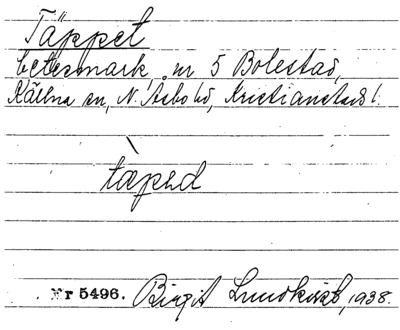 Täppet
betesmark, nr 5 Bolestad,
Källna sn, N. Åsbo hd, Kristianstads l.
tæpəd
Nr 5496. Birgit Lundkvist, 1938.